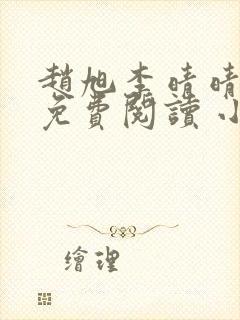 趙旭李晴晴
免費閱讀小
繪理